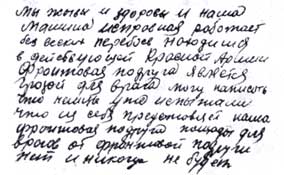 Мы живы и здоровы и наша
машина исправная работает
без всяких перебоев находимся
в действующей Красной Армии
Фронтовая подруга является
грозой для врага могу написать
что немцы уже испытали
что из себя представляет наша
фронтовая подруга пощады для
врагов от фронтовой подруги
нет и никогда не будет